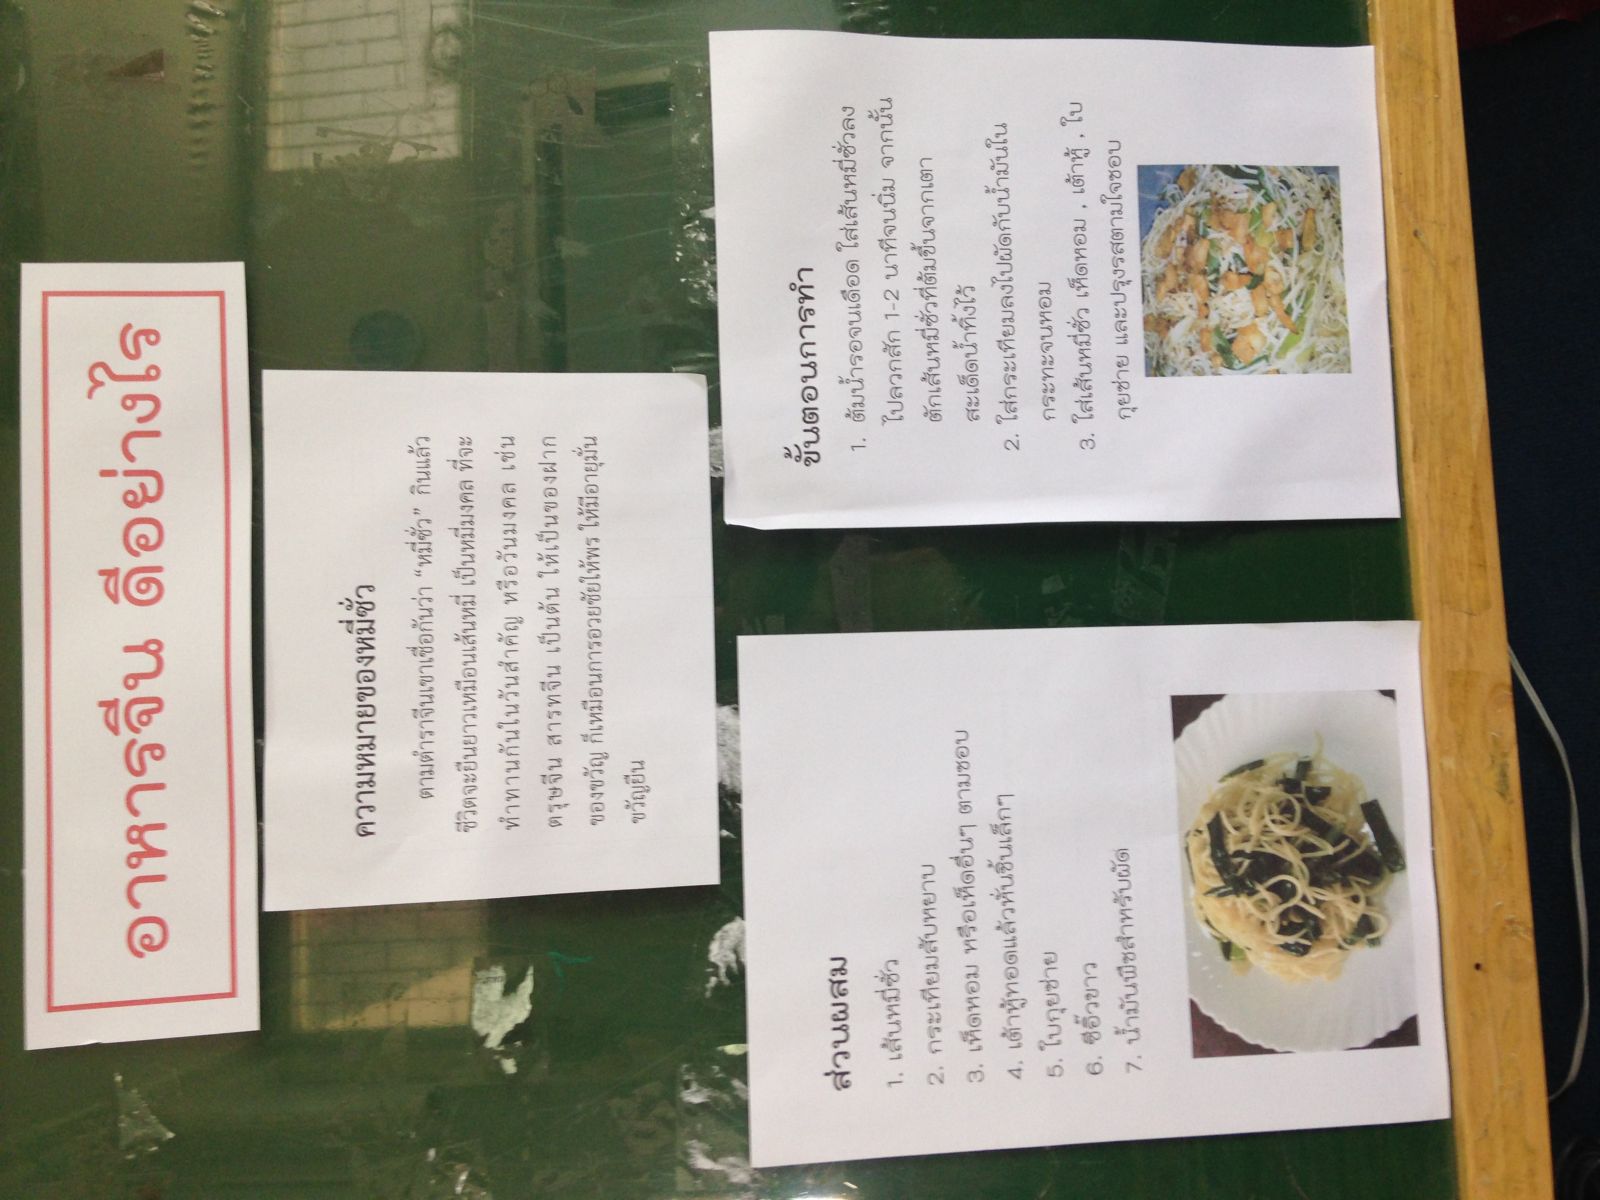 อาหารจีน ดีอย่างไร
ความหมายของหมี่ซั่ว
ตามตำราจีนเขาเชื่อกันว่า “หมี่ซั่ว” กินแล้ว
ชีวิตจะยืนยาวเหมือนเส้นหมี่ เป็นหมี่มงคล ที่จะ
ทำทานกันในวันสำคัญ หรือวันมงคล เช่น
ตรุษจีน สารทจีน เป็นต้น ให้เป็นของฝาก
ของขวัญ ก็เหมือนการอวยชัยให้พร ให้มีอายุมั่น
ขวัญยืน
ส่วนผสม
1. เส้นหมี่ซั่ว
2. กระเทียมสับหยาบ
3. เห็ดหอม หรือเห็ดอื่นๆ ตามชอบ
4. เต้าหู้ทอดแล้วหั่นชิ้นเล็กๆ
5. ใบกุยช่าย
6. ซีอิ๊วขาว
7. น้ำมันพืชสำหรับผัด
ขั้นตอนการทำ
1. ต้มน้ำรอจนเดือด ใส่เส้นหมี่ซั่วลง
ไปลวกสัก 1-2 นาทีจนนิ่ม จากนั้น
ตักเส้นหมี่ซั่วที่ต้มขึ้นจากเตา
สะเด็ดน้ำทิ้งไว้
2. ใส่กระเทียมลงไปผัดกับน้ำมันใน
กระทะจนหอม
3. ใส่เส้นหมี่ซั่ว เห็ดหอม , เต้าหู้ , ใบ
กุยช่าย และปรุงรสตามใจชอบ